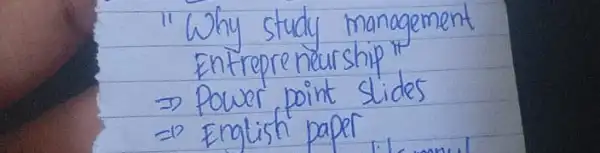 " Why study management
Entrepreneurship "
⇒ Power point slides
⇒ English paper